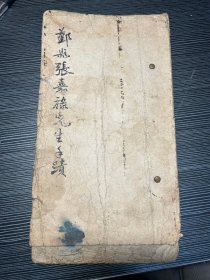 鄞縣張嘉祿先生手蹟